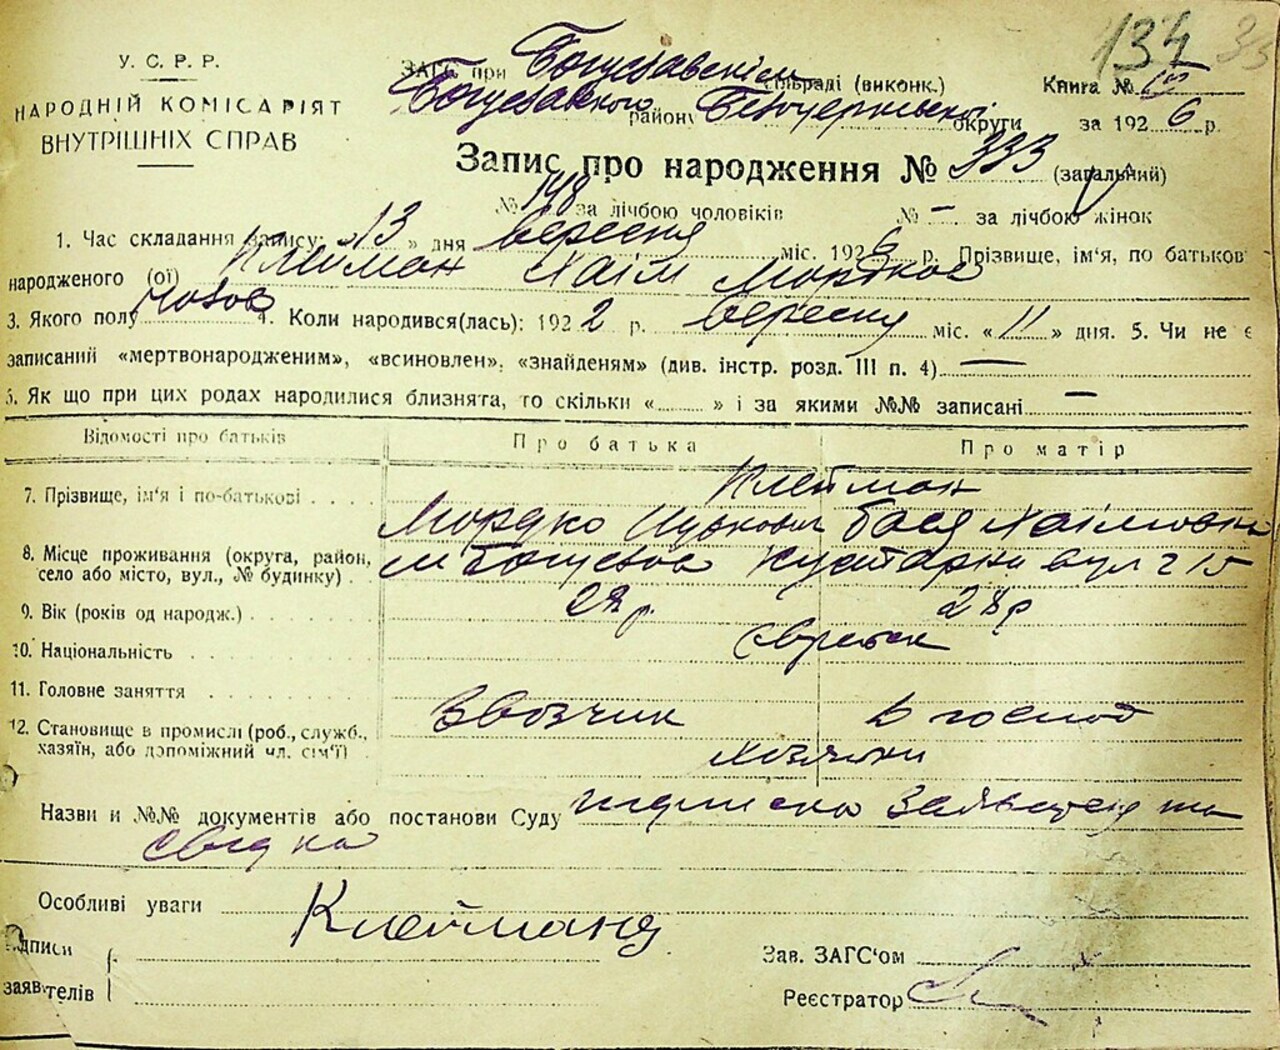 134 35
У. С. Р. Р.
НАРОДНІЙ КОМІСАРІЯТ
ВНУТРІШНІХ СПРАВ
ЗАГС при Богуславскім сільраді (виконк.) Книга №
Богуславского району Білоцерківської округи за 1926 р.
Запис про народження № 333 (загальний)
№ 148 за лічбою чоловіків № — за лічбою жінок
1. Час складання запису: «13» дня вересня міс. 1926 р. Прізвище, ім'я, по батьков
народженого (ої) Клейман Хаім Мордков
3. Якого полу чолов 4. Коли народився(лась): 1922 р. вересня міс. «11» дня. 5. Чи не є
записаний «мертвонародженим», «всиновлен», «знайденям» (див. інстр. розд. III п. 4) —
6. Як що при цих родах народилися близнята, то скільки «......» і за якими №№ записані —
Відомості про батьків Про батька Про матір
7. Прізвище, ім'я і по-батькові Клейман
Мордко Ицькович Бася Хаімовна
8. Місце проживання (округа, район,
село або місто, вул., № будинку) м Богуслав Кустарна вул 2 15
9. Вік (років од народж.) 28 р
10. Національність евреии
11. Головне заняття
Звозчик в господ
12. Становище в промислі (роб., служб.,
хазяїн, або допоміжний чл. сім'ї) хозяини
Назви и №№ документів або постанови Суду підписка Заявителя та
свідка
Особливі уваги
Клейманд
Підписи
заявителів
Зав. ЗАГС'ом
Реєстратор